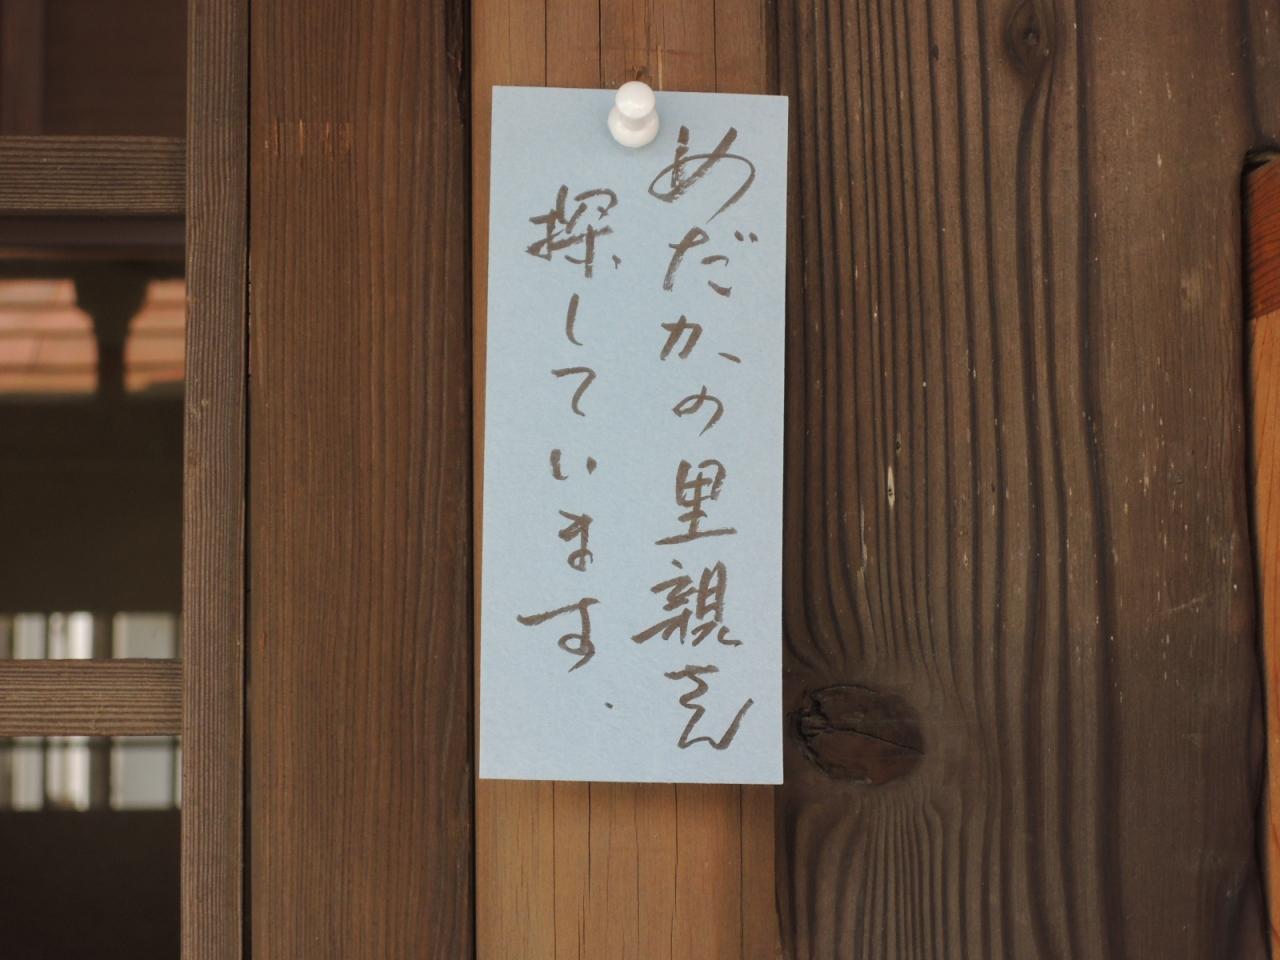 めだかの里親さん
探しています.